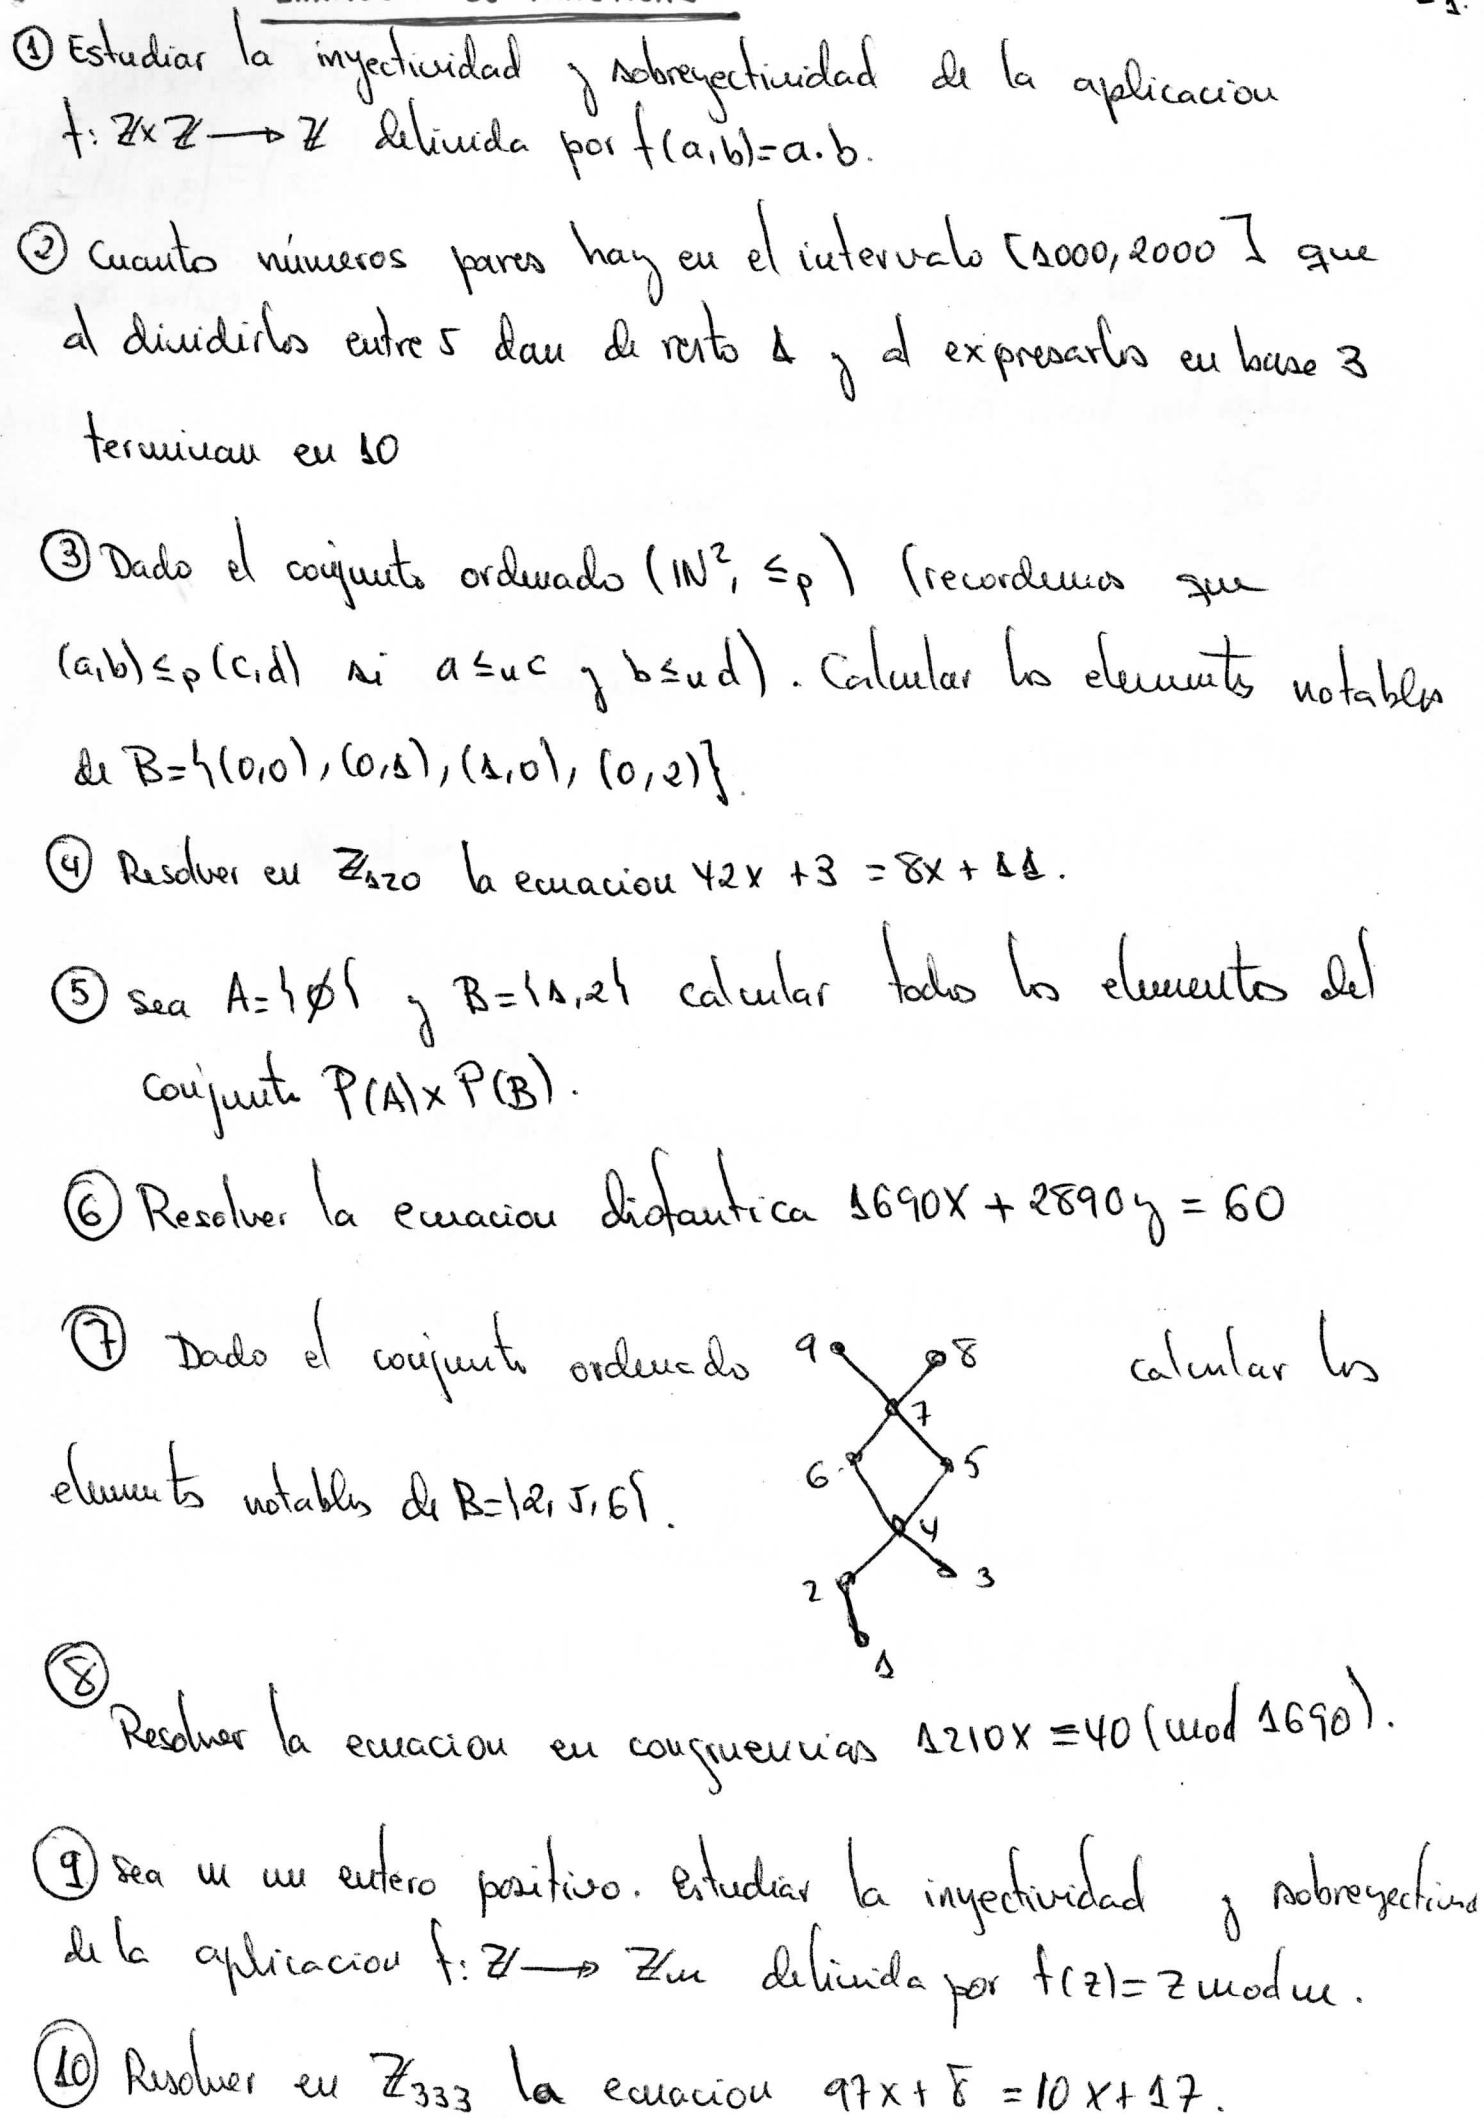 ① Estudiar la inyectividad y sobreyectividad de la aplicacion
f: ℤ×ℤ → ℤ definida por f(a,b)=a.b.
② Cuanto números pares hay en el intervalo [1000,2000] que
al dividirlos entre 5 dan de resto 1 y al expresarlos en base 3
terminan en 10
③ Dado el conjunto ordenado (ℕ², ≤p) (recordemos que
(a,b) ≤p (c,d) si a ≤u c y b ≤u d). Calcular los elementos notables
de B={(0,0), (0,1), (1,0), (0,2)}.
④ Resolver en ℤ120 la ecuacion 42x + 3 = 8x + 11.
⑤ sea A={∅} y B={1,2} calcular todos los elementos del
conjunto P(A)×P(B).
⑥ Resolver la ecuacion diofantica 1690x + 2890y = 60
⑦ Dado el conjunto ordenado 9 8 calcular los
7
elementos notables de B={2,5,6}. 6 5
4
2 3
1
⑧ Resolver la ecuacion en congruencias 1210x ≡ 40 (mod 1690).
⑨ sea m un entero positivo. Estudiar la inyectividad y sobreyectivid
de la aplicacion f: ℤ → ℤm definida por f(z)= z mod m.
⑩ Resolver en ℤ333 la ecuacion 97x + 8 = 10x + 17.